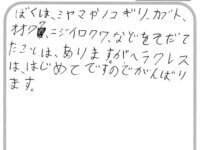 ぼくは、ミヤマやノコギリ、カブト、
オオクワ、ニジイロクワ、などをそだて
たことは、ありますがヘラクレス
は、はじめてですのでがんばり
ます。